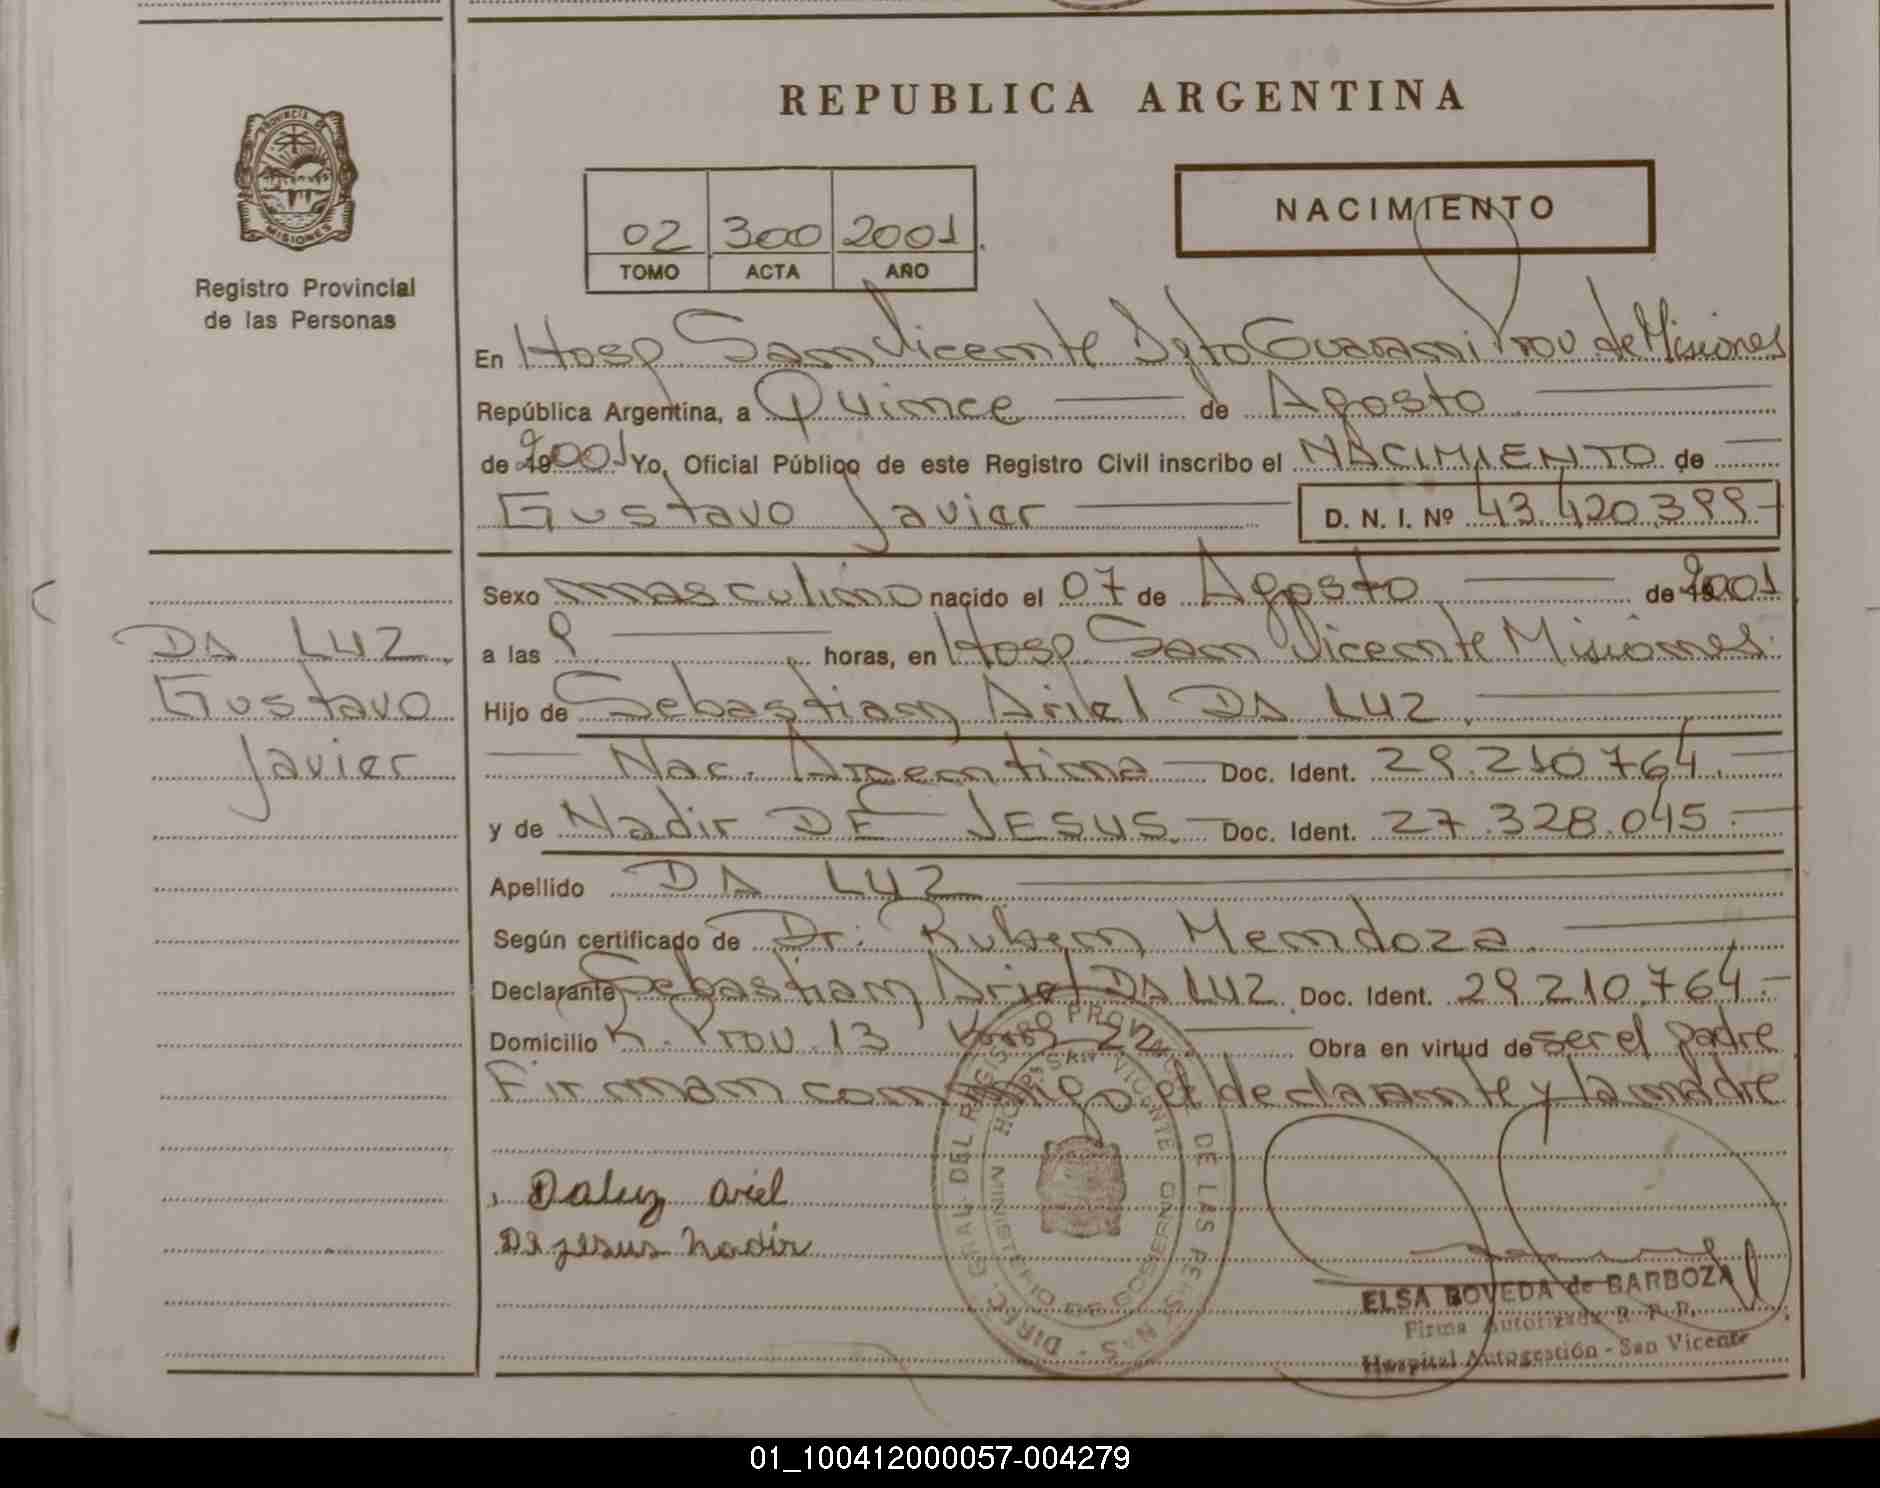 REPUBLICA ARGENTINA
PROVINCIA DE
MISIONES
Registro Provincial
de las Personas
02 300 2001
TOMO ACTA AÑO
NACIMIENTO
En Hosp San Vicente Dpto Guarani Prov de Misiones
República Argentina, a Quince de Agosto
de 2001 Yo, Oficial Público de este Registro Civil inscribo el NACIMIENTO de
Gustavo Javier D. N. I. Nº 43.420.399
Sexo masculino nacido el 07 de Agosto de 2001
a las 9 horas, en Hosp San Vicente Misiones.
Hijo de Sebastian Ariel DA LUZ
Nac. Argentina Doc. Ident. 29.210764
y de Nadir DE JESUS. Doc. Ident. 27.328.045
Apellido DA LUZ
Según certificado de Dr. Ruben Mendoza
Declarante Sebastian Ariel DA LUZ. Doc. Ident. 29.210.764
Domicilio R. Prov. 13 22 Obra en virtud de ser el padre
Firman conmigo el declarante y la madre
DA LUZ
Gustavo
Javier
Daluz ariel
De jesus nadir
DIREC. GRAL. DEL REGISTRO PROVINC. DE LAS PERSONAS
HOSP. SAN VICENTE
MINISTERIO DE GOBIERNO
ELSA BOVEDA de BARBOZA
Firma Autorizada R. P. P.
Hospital Autogestión - San Vicente
01_100412000057-004279